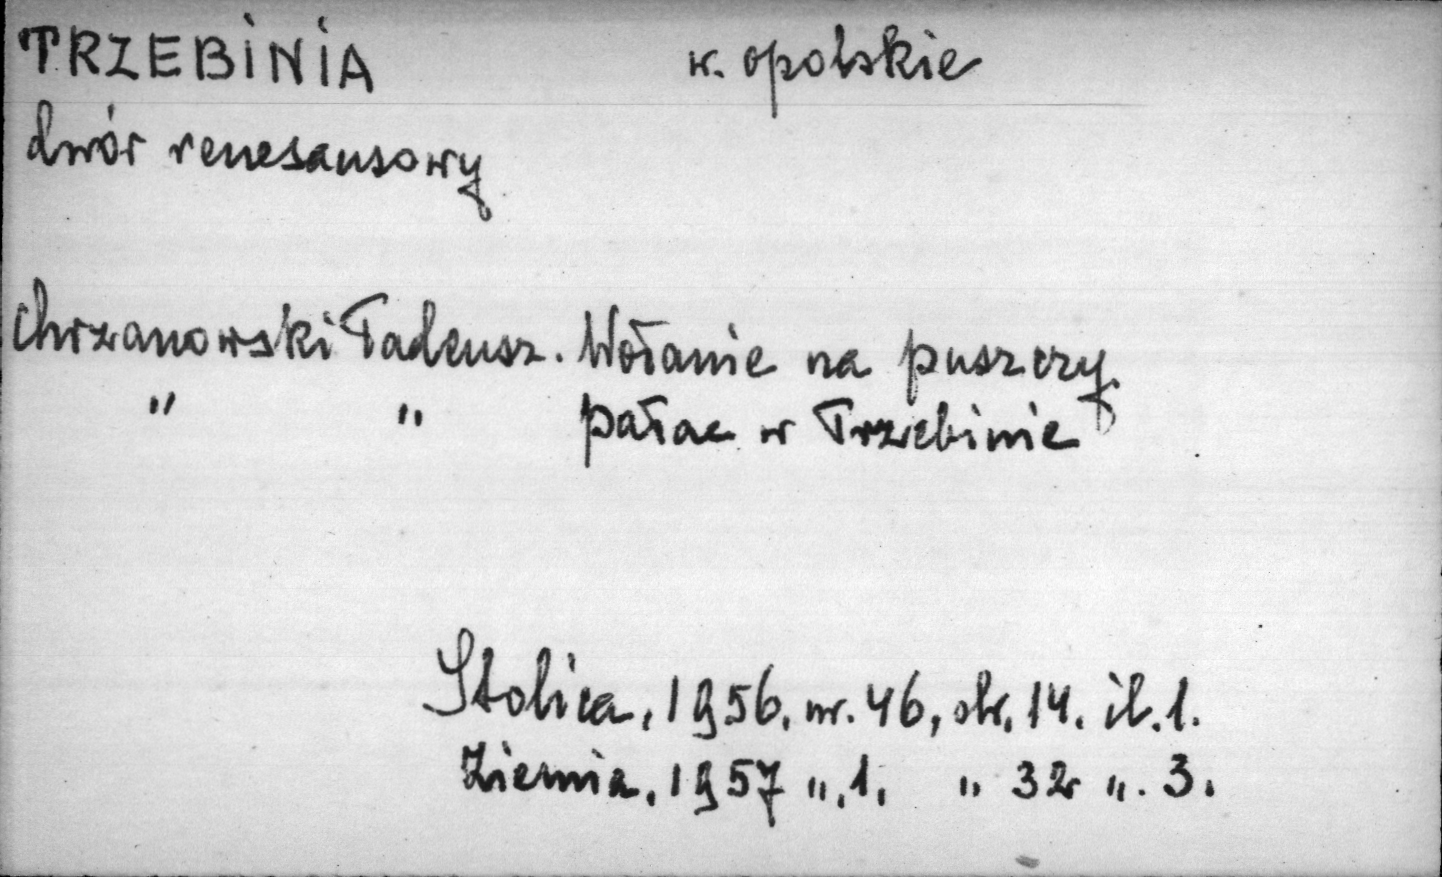 TRZEBINIA w. opolskie
dwór renesansowy
Chrzanowski Tadeusz. Wołanie na puszczy.
" " Pałac w Trzebinie
Stolica, 1956, nr. 46, str. 14. il. 1.
Ziemia, 1957 ". 1. " 32 ". 3.